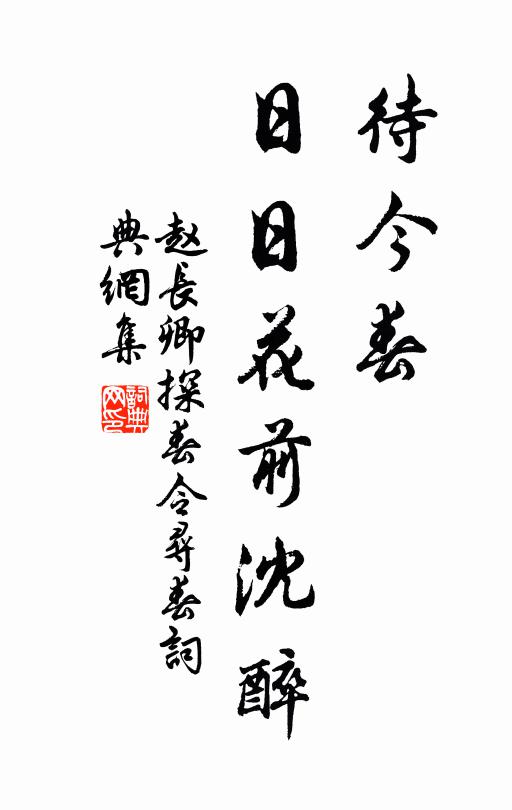 待今春
日日花前沈醉
赵長卿探春令尋春詞
典網集
詞典网印